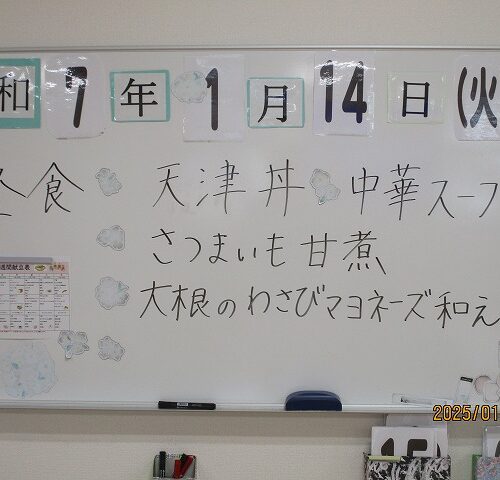 和7年1月14日(火
食 天津丼 中華スープ
さつまいも甘煮
大根のわさびマヨネーズ和え
週間献立表
2025/01